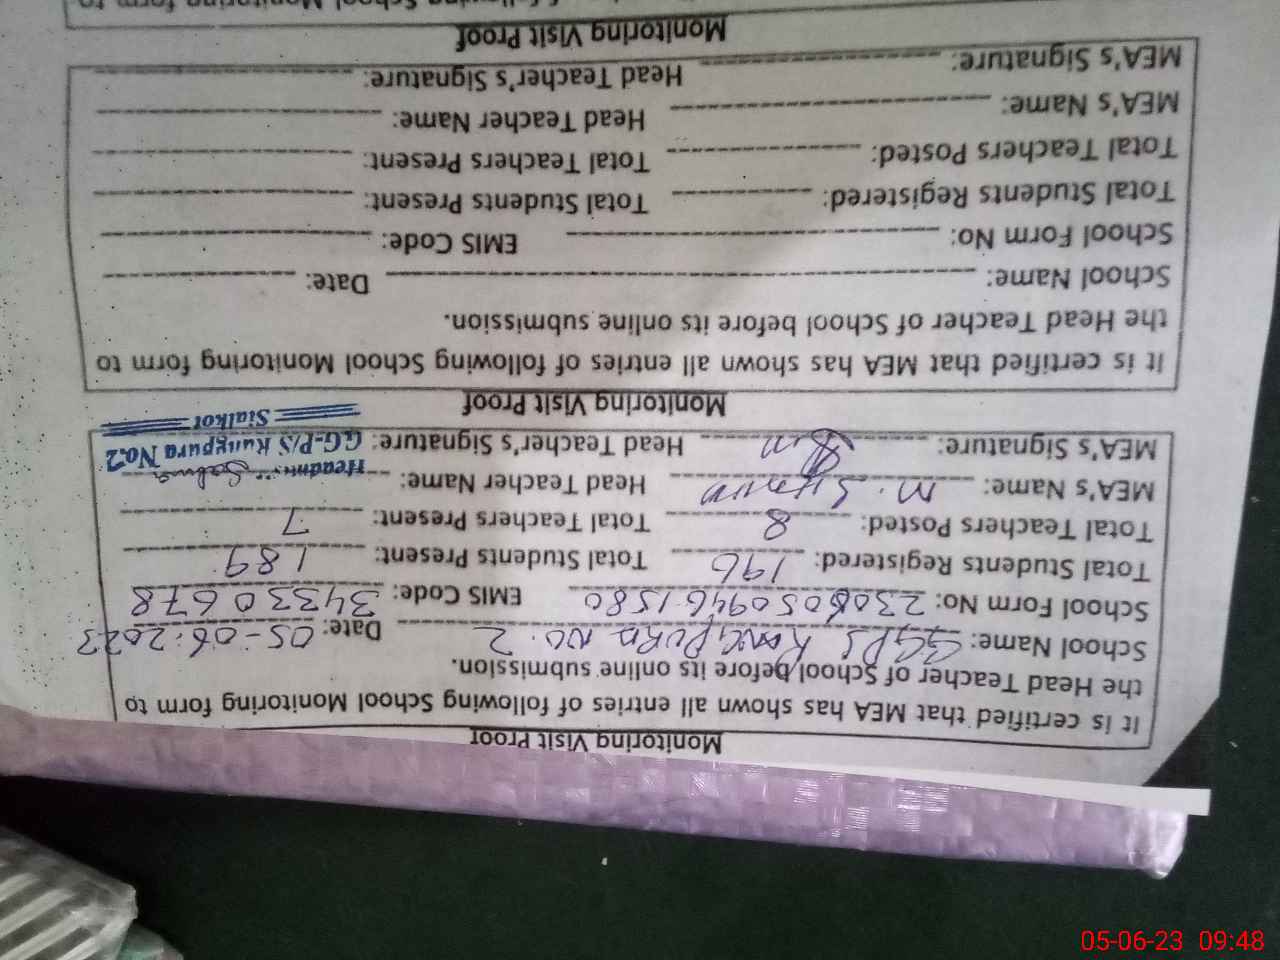 Monitoring Visit Proof
It is certified that MEA has shown all entries of following School Monitoring form to
the Head Teacher of School before its online submission.
School Name: GGPS RANGPURA NO. 2 Date: 05-06-2023
School Form No: 23060509461580 EMIS Code: 34330678
Total Students Registered: 196 Total Students Present: 189
Total Teachers Posted: 8 Total Teachers Present: 7
MEA's Name: M. Head Teacher Name: Salma
MEA's Signature: Head Teacher's Signature:
G.G-P/S Rungpura No.2
Sialkot
Monitoring Visit Proof
It is certified that MEA has shown all entries of following School Monitoring form to
the Head Teacher of School before its online submission.
School Name: Date:
School Form No: EMIS Code:
Total Students Registered: Total Students Present:
Total Teachers Posted: Total Teachers Present:
MEA's Name: Head Teacher Name:
MEA's Signature: Head Teacher's Signature:
Monitoring Visit Proof
School Monitoring form to
05-06-23 09:48